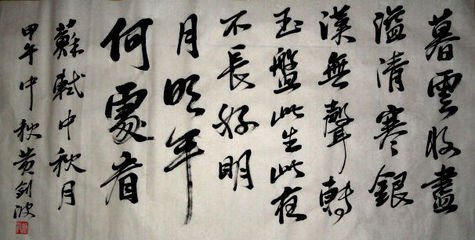 暮雲收盡
溢清寒銀
漢無聲轉
玉盤此生此夜
不長好明
月明年
何處看
蘇軾中秋月
甲午中秋黄剑波